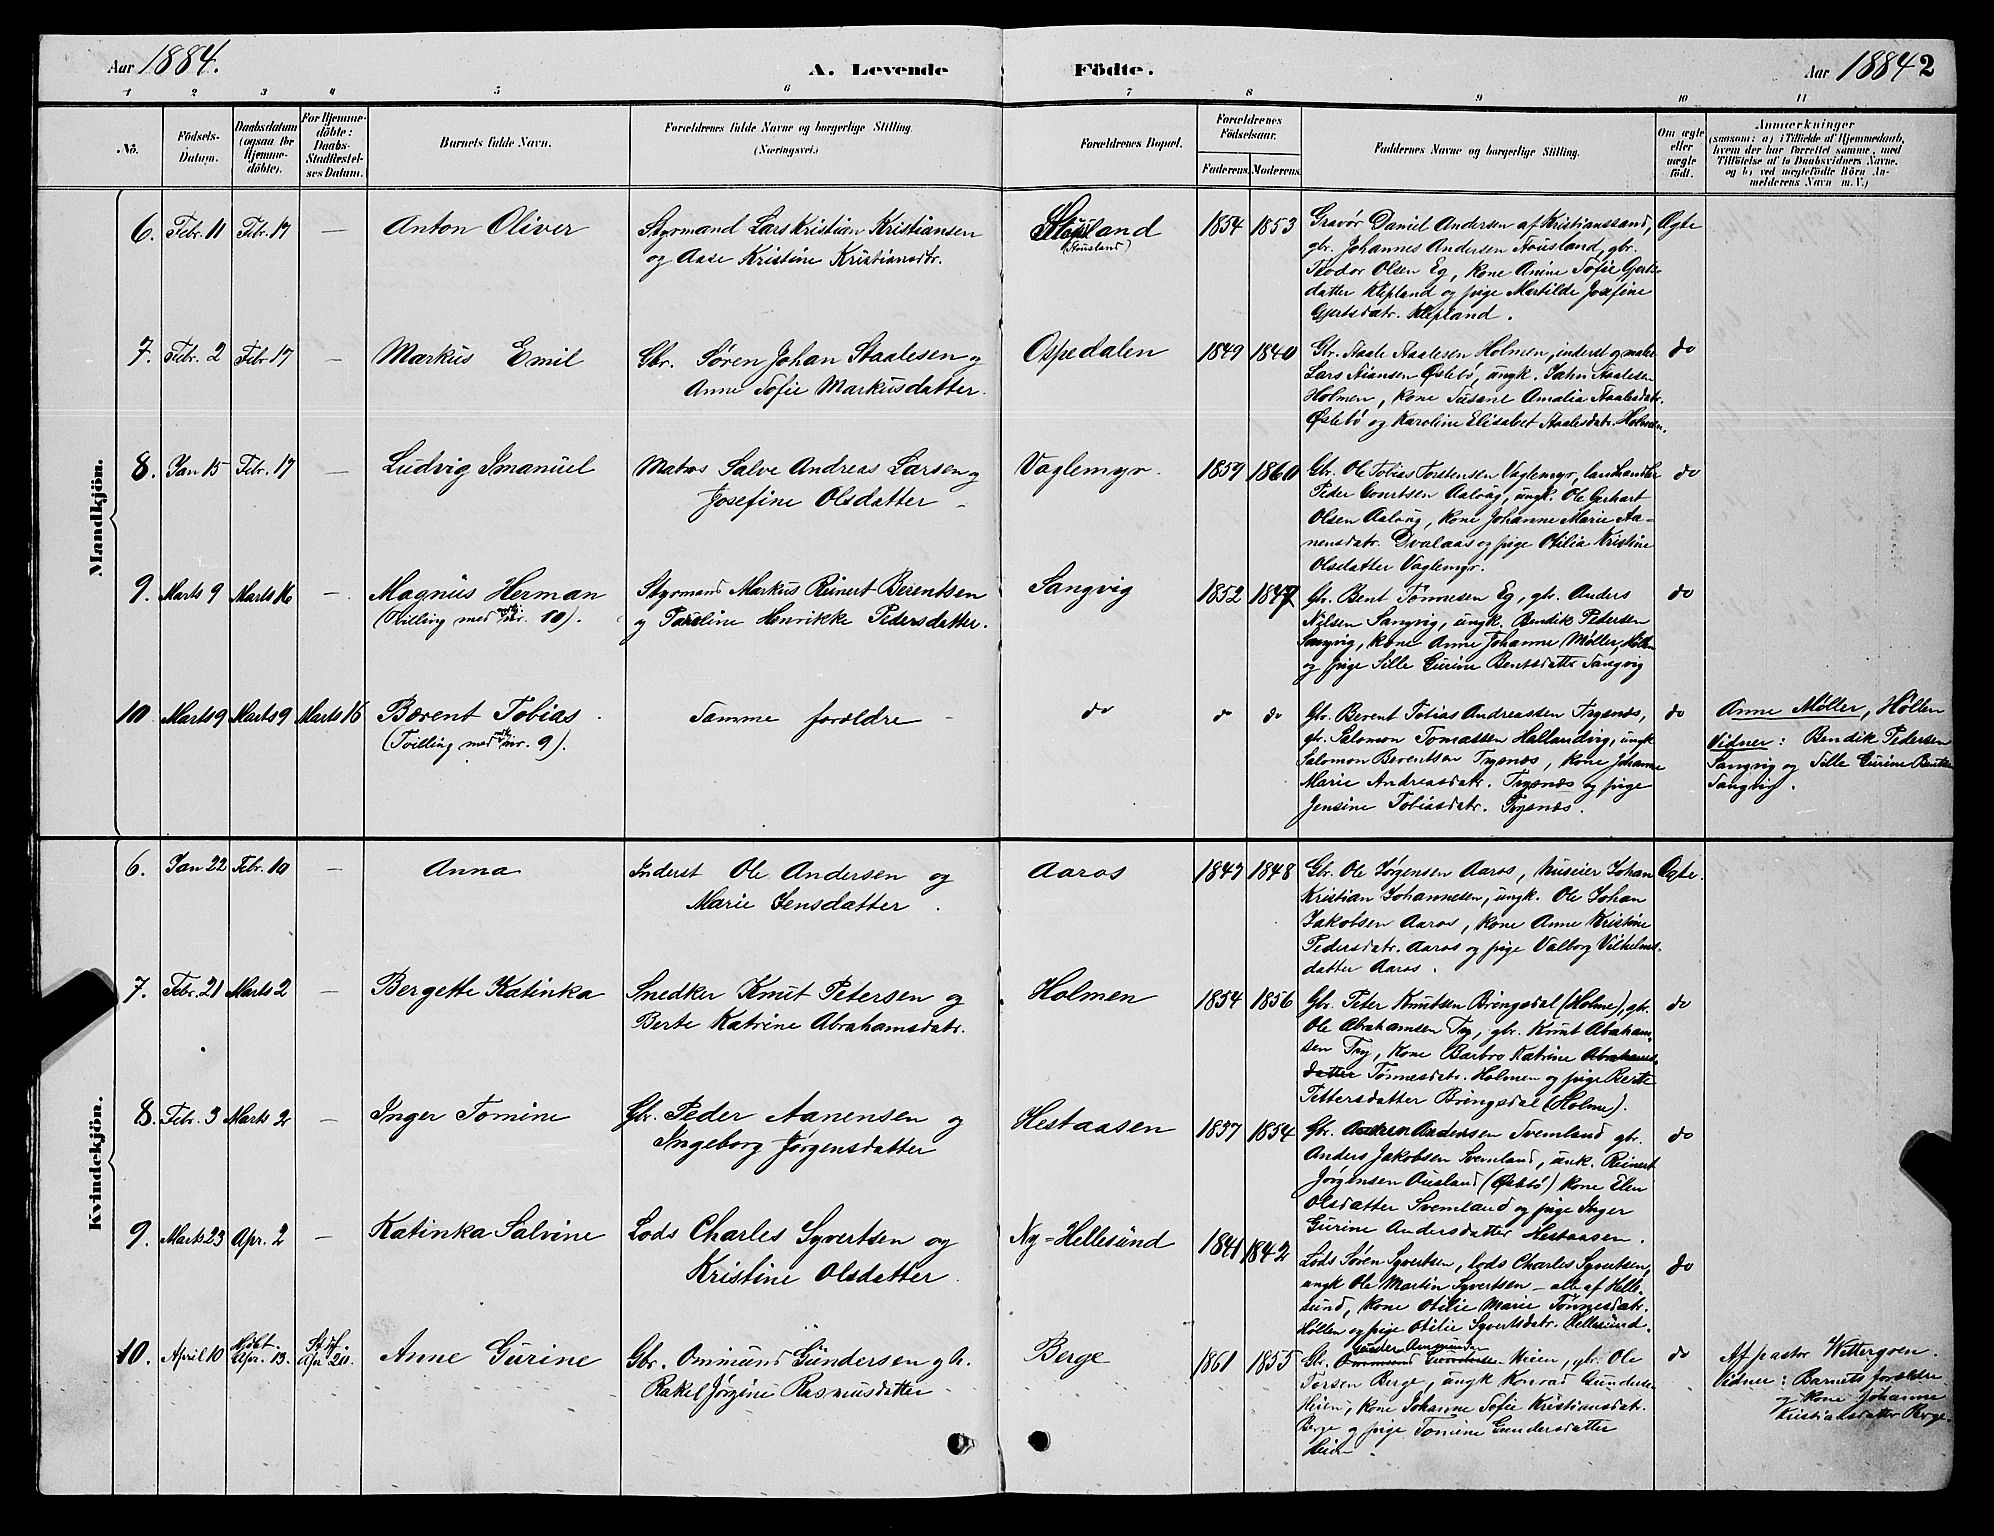 Aar 1884.
A. Levende Födte.
Aar 1884 2
1 2 3 4 5 6 7 8 9 10 11
No.
Födsels-
Datum.
Daabsdatum
(ogsaa for
Hjemme-
döbte).
For Hjemme-
döbte:
Daabs-
Stadfæstel-
ses Datum.
Barnets fulde Navn.
Forældrenes fulde Navne og borgerlige Stilling.
(Næringsvei.)
Forældrenes Bopæl.
Forældrenes
Födselsaar.
Faderens. Moderens.
Faddernes Navne og borgerlige Stilling.
Om ægte
eller
uægte
født.
Anmærkninger
(saasom: a) i Tilfælde af Hjemmedaab,
hvem der har forrettet samme, med
Tilföielse af to Daabsvidners Navne.
og b) ved uægtefödte Börn An-
melderens Navn m. V.)
Mandkjön.
6. Febr. 11 Febr. 17 — Anton Oliver
Styrmand Lars Kristian Kristiansen
og Aase Kristine Kristiansdtr.
(Stousland)
1854 1853
Gravør Daniel Andersen af Kristianssand,
gbr. Johannes Andersen Stousland, gbr.
Teodor Olsen Eg, kone Anine Sofie Gjerts-
datter Klepland og pige Martilde Josefine
Gjertsdatr. Klepland.
Ægte
7. Febr. 2 Febr 17 — Markus Emil
Gbr. Søren Johan Staalesen og
Anne Sofie Markusdatter.
Ospedalen
1849 1840
Gbr. Staale Staalesen Holmen, inderst og maler
Lars Stiansen Øslebø, ungk. Jahn Staalesen
Holmen, kone Susane Amalia Staalesdatr.
Øslebø og Karoline Elisabet Staalesdatr. Holmen.
do
8. Jan 15 Febr. 17 — Ludvig Imanuel
Matros Salve Andreas Larsen og
Josefine Olsdatter
Vaglemyr.
1859 1860
Gbr. Ole Tobias Torstensen Vaglemyr, landhandler
Peder Gourtsen Aalvug, ungk. Ole Gerhart
Olsen Aalvug, kone Johanne Marie Aa-
nensdatr. Dvalaas og pige Otilia Kristine
Olsdatter Vaglemyr.
do
9. Marts 9 Marts 16 — Magnus Herman
(Tvilling med mk. nr. 10).
Styrmand Markus Reinert Berentsen
og Pauline Henrikke Pedersdatter.
Sangvig
1852 1847
Gbr. Bent Tønnesen Eg, gbr. Anders
Nilsen Sangvig, ungk. Bendik Pedersen
Sangvig, kone Anne Johanne Møller, Høllen
og pige Sille Gurine Bentsdatter Sangvig
do
10 Marts 9 Marts 9 Marts 16 Bærent Tobias
(Tvilling med mk. nr. 9).
Samme forældre
do
do do
Gbr. Berent Tobias Andreassen Trysnes,
gbr. Salomon Tomassen Hallandvig, ungk
Salomon Berentsen Trysnæs, kone Johanne
Marie Andreasdatr. Trysnæs og pige
Jensine Tobiasdatr. Trysnæs.
do
Anne Møller, Høllen
Vidner: Bendik Pedersen
Sangvig og Sille Gurine Bentsen
Sangvig.
Kvindekjön.
6. Jan 22 Febr. 10 — Anna
Inderst Ole Andersen og
Marie Jensdatter.
Aaros
1843 1848
Gbr. Ole Jørgensen Aaros, Huseier Johan
Kristian Johannesen, ungk. Ole Johan
Jakobsen Aaros, kone Anne Kristine
Pedersdatr. Aaros og pige Valborg Vilhelms-
datter Aaros.
Ægte.
7. Febr. 21 Marts 2 — Bergette Katinka
Snedker Knut Petersen og
Berte Katrine Abrahamsdatr.
Holmen
1854 1856
Gbr. Peter Knutsen Bringsdal (Holme), gbr.
Ole Abrahamsen Try, gbr. Knut Abraham-
sen Try, kone Barbro Katrine Abrahams-
datter Tønnesdatr. Holmen og pige Berte
Pettersdatter Bringsdal (Holme).
do
8. Febr. 3 Marts 2 — Inger Tomine
Gbr. Peder Aanensen og
Ingeborg Jørgensdatter
Hestaasen
1837 1854
Gbr. Andersen Svemland gbr.
Anders Jakobsen Svemland, unk. Reinert
Jørgensen Ousland (Øslebø) kone Elen
Olsdatter Svemland og pige Inger
Gurine Andersdatter Hestaasen.
do
9. Marts 23 Apr. 2 — Katinka Salvine
Lods Charles Syvertsen og
Kristine Olsdatter.
Ny=Hellesund
1841 1842
Lods Søren Syvertsen, lods Charles Syvertsen,
ungk Ole Martin Syvertsen — alle af Helle-
sund, kone Otilie Marie Tønnesdatr.
Høllen og pige Otilie Syvertsdatr. Hellesund.
do
10. April 10 Hjdbt. Apr. 13. Stadf. Apr 20. Anne Gurine
Gbr. Ommund Gundersen og h.
Rakel Jørgine Rasmusdatter
Berge
1861 1855
Gunder Ommunden
Gbr. Ommund Gundersen Heien, gbr. Ole
Torsen Berge, ungk Konrad Gunders.
Heien, kone Johanne Sofie Kristiansdatr.
Berge og pige Tomine Gundersdatter
Heien.
do
Af pastor Wettergren.
Vidner: Barnets forældre
og kone Johanne
Kristiansdatter Berge.